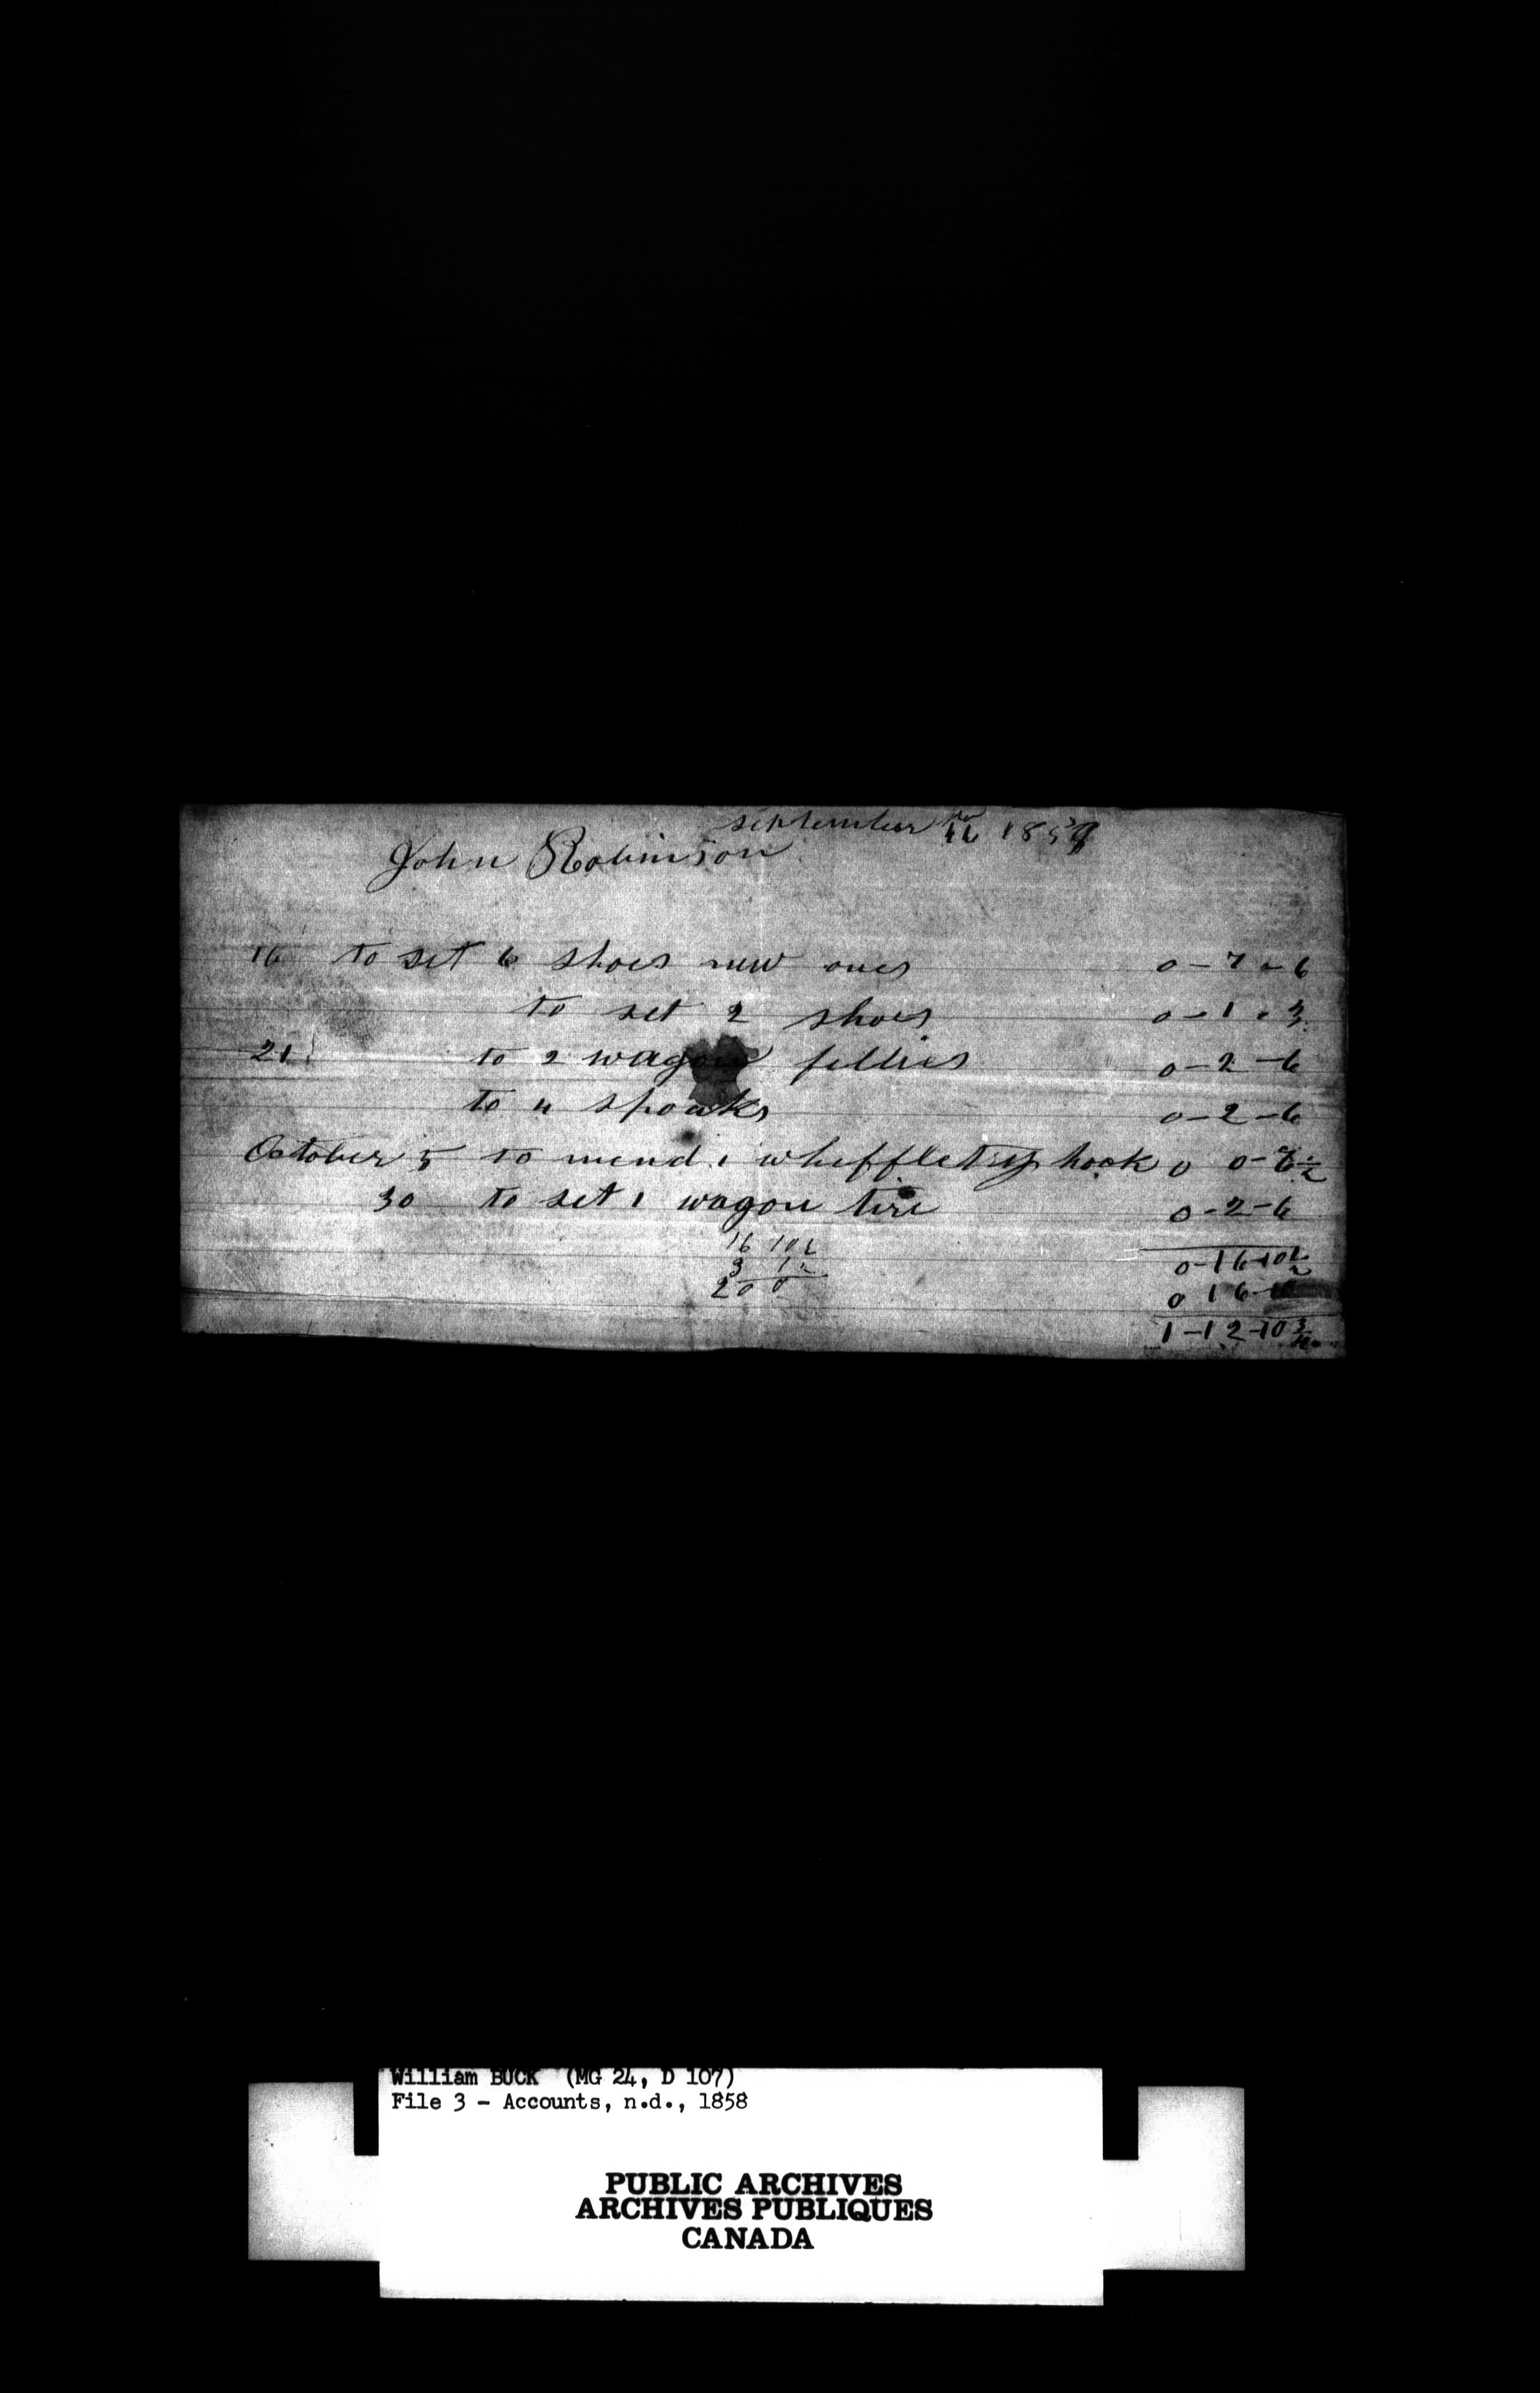 september 16 185
John Robinson
16 to set 6 shoes new ones 0-7-6
to set 2 shoes 0-1-3
21 to 2 wagon fellies 0-2-6
to 4 spoaks 0-2-6
October 5 to mend 1 whiffletry hook 0 0-7½
30 to set 1 wagon tire 0-2-6
16 10½ 0-16-10½
3 1½ 0 16
20 0 1-12-10¾
William BUCK (MG 24, D 107)
File 3 - Accounts, n.d., 1858
PUBLIC ARCHIVES
ARCHIVES PUBLIQUES
CANADA